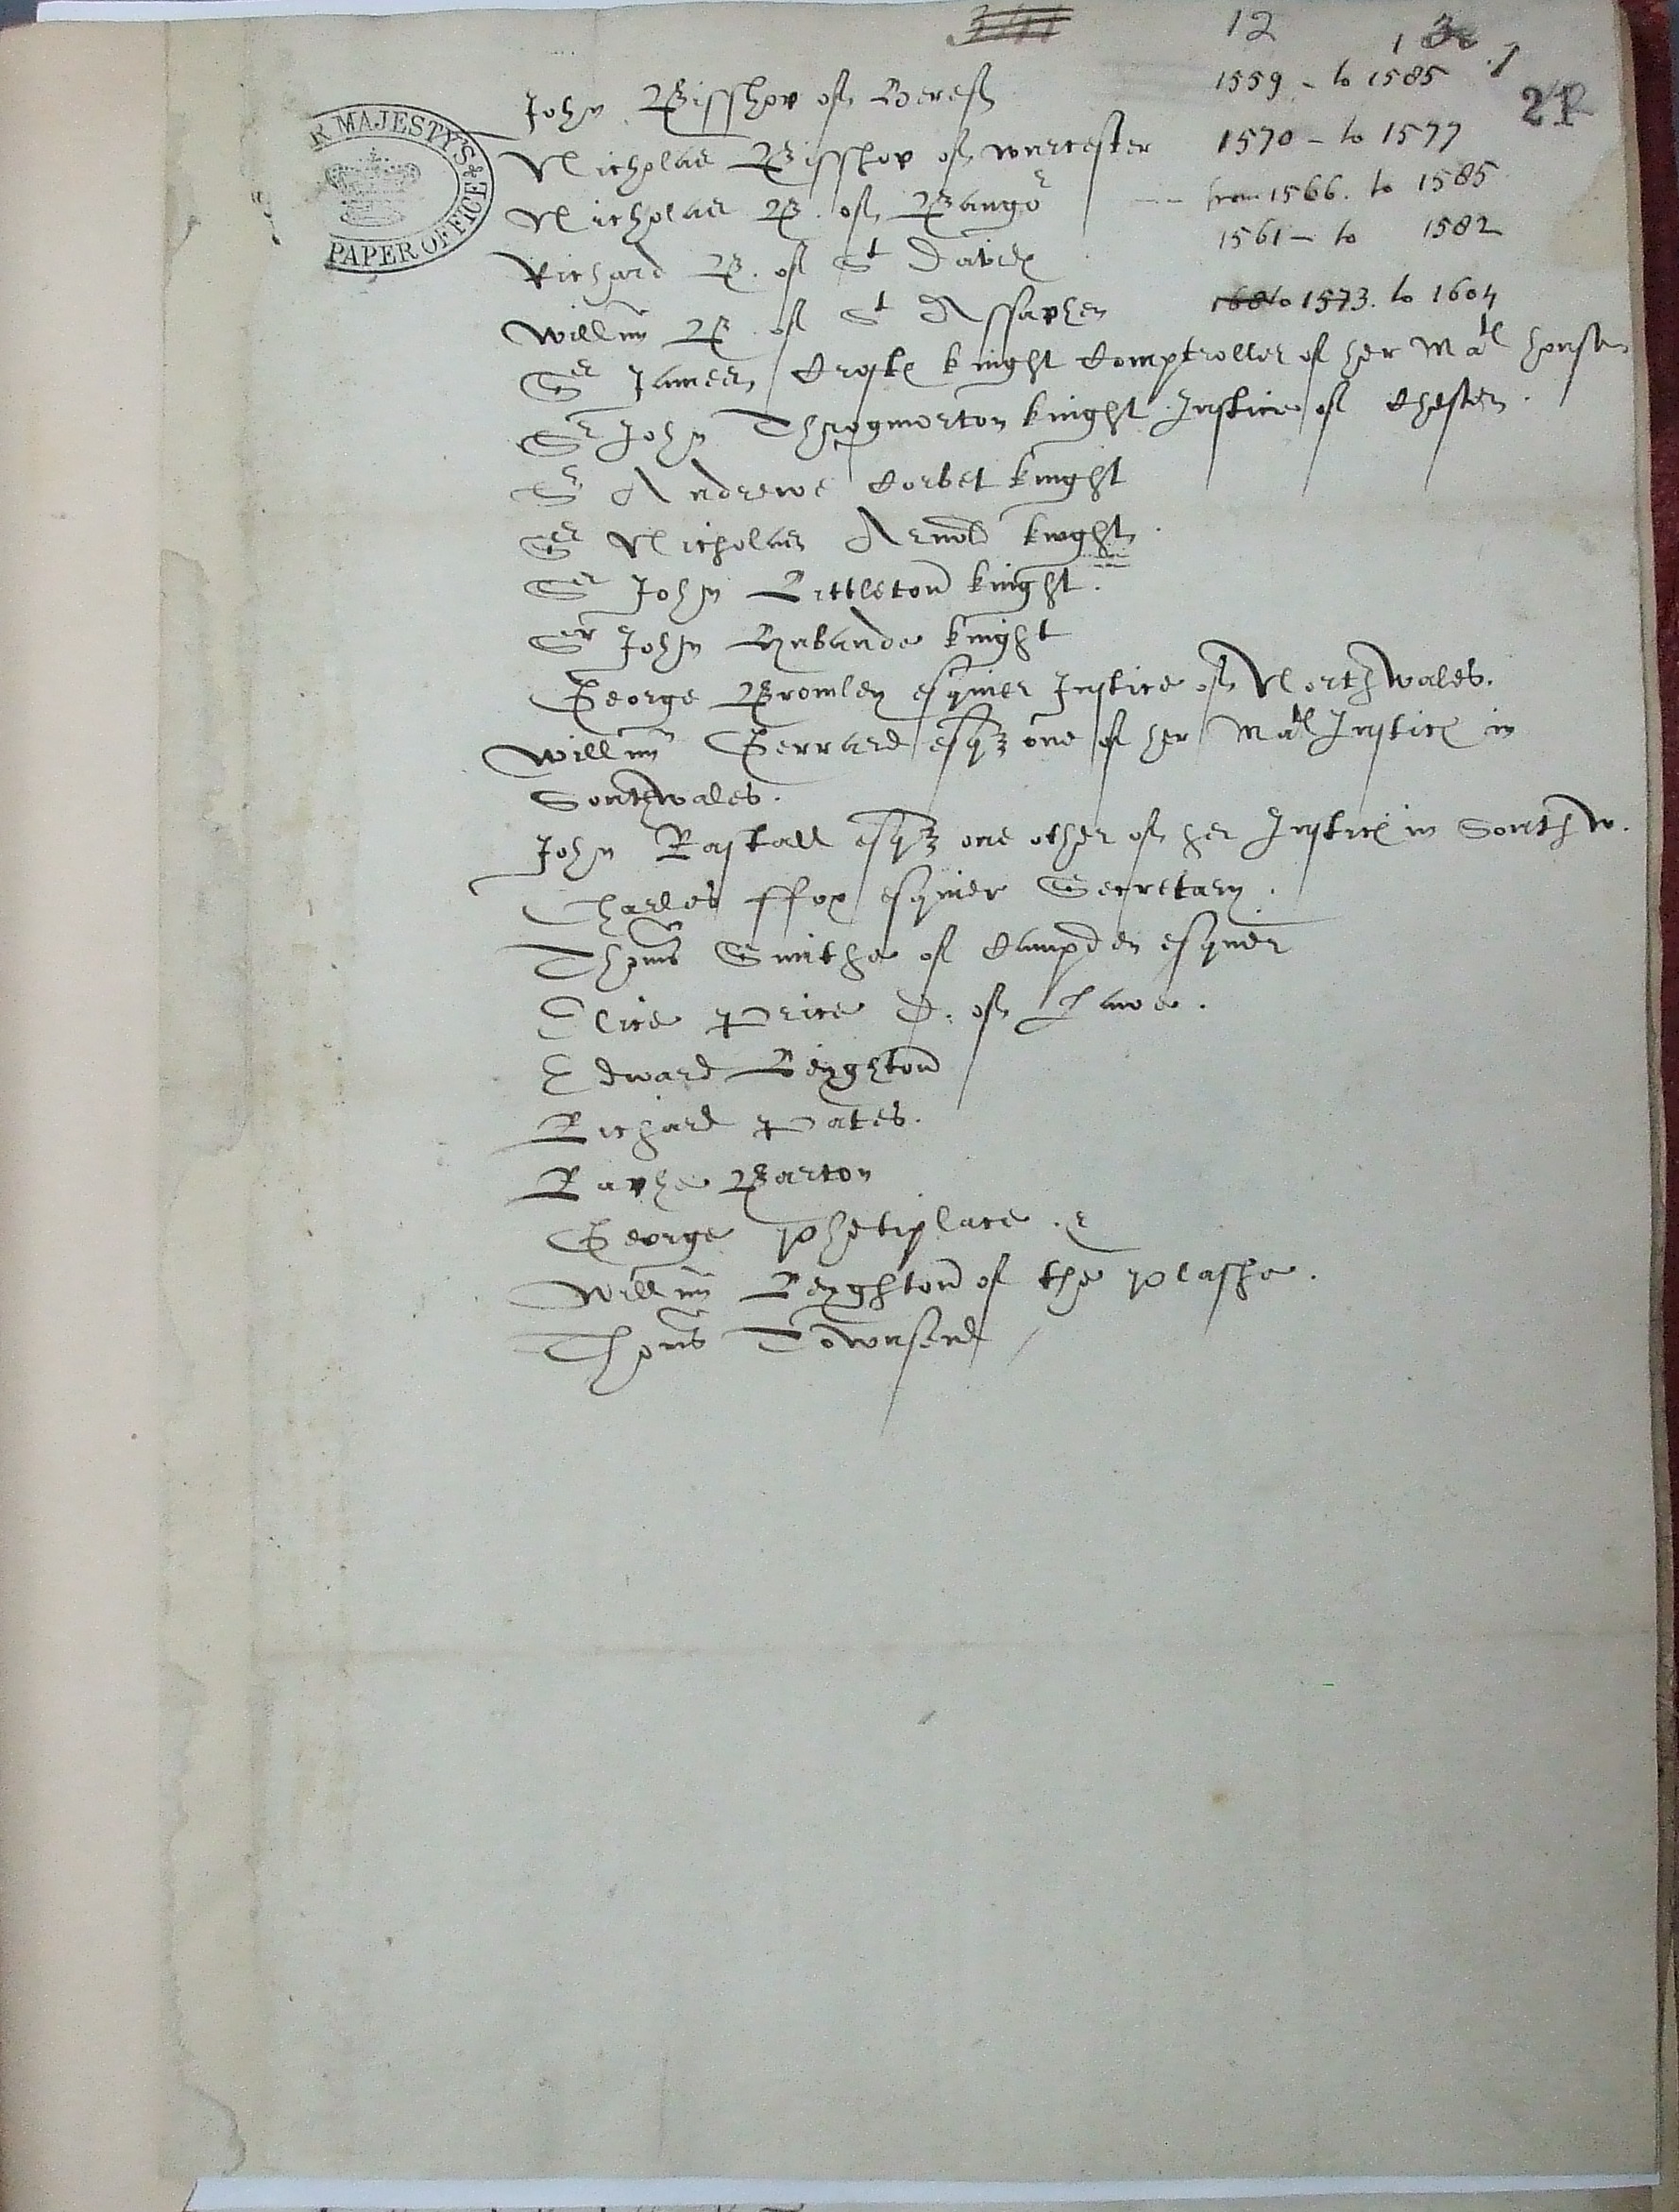 12
1
21
John Bisshop of Heref 1559 - to 1585
Nicholas Bisshop of Worcester 1570 - to 1577
Nicholas B. of Bangor from 1566. to 1585
Richard B. of St Davides 1561 - to 1582
Willm B. of St Assaphen 1573. to 1604
Sr James Croftes knight Comptroller of her Matſ house
Sr John Throgmorton knight Justice of Chester.
Sr Andrewe Corbet knight
Sr Nicholas Arnold knight
Sr John Littleton knight.
Sr John Hubande knight
George Bromley esquier Justice of North Wales.
Willm Gerrard esqz one of her Matſ Justices in
Southwales.
John Rastall esqz one other of her Justices in South w.
Charles ffox esquier Secretary.
Thoms Smithe of Campden esquier
Elice Price D. of Lawe.
Edward Leighton
Richard Pates.
Raphe Barton
George Phetiplace.
Willm Leyghton of the Plashe.
Thoms Townsend
R MAJESTY'S
PAPER OFFICE